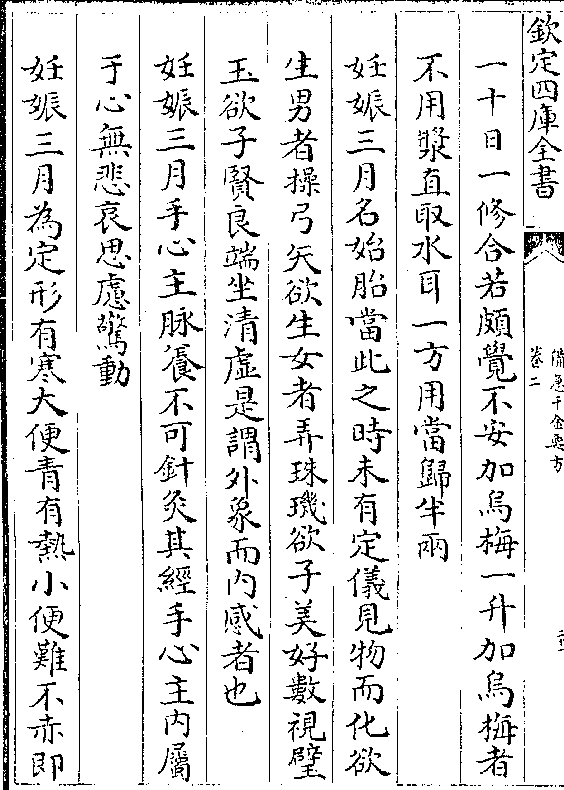 欽定四庫全書
備急千金要方
卷二
一十日一修合若頗覺不安加烏梅一升加烏梅者
不用漿直取水耳一方用當歸半兩
妊娠三月名始胎當此之時未有定儀見物而化欲
生男者操弓矢欲生女者弄珠璣欲子美好數視璧
玉欲子賢良端坐清虛是謂外象而內感者也
妊娠三月手心主脉養不可針灸其經手心主內屬
于心無悲哀思慮驚動
妊娠三月為定形有寒大便青有熱小便難不赤即